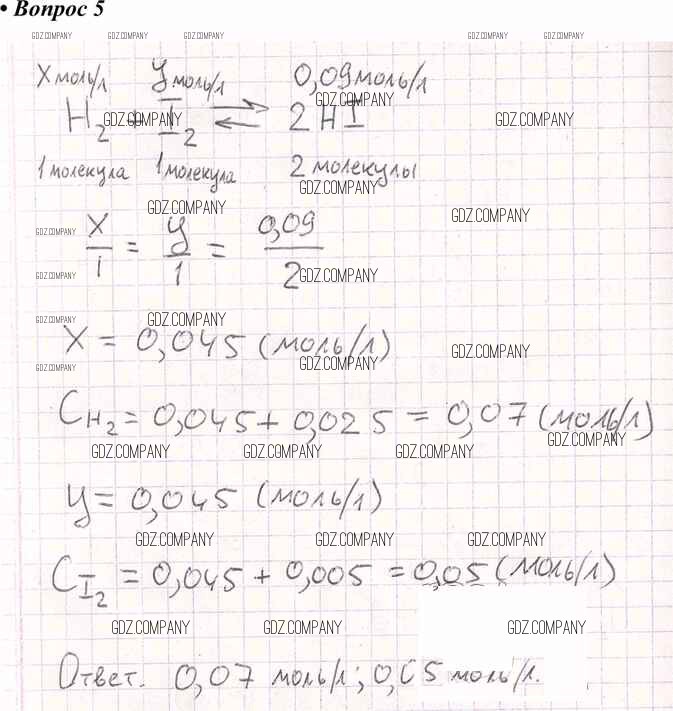 • Вопрос 5
GDZ.COMPANY GDZ.COMPANY GDZ.COMPANY GDZ.COMPANY GDZ.COMPANY
X моль/л y моль/л 0,09 моль/л
GDZ.COMPANY
H2 + I2 ⇄ 2 HI
GDZ.COMPANY GDZ.COMPANY
1 молекула 1 молекула 2 молекулы
GDZ.COMPANY
GDZ.COMPANY GDZ.COMPANY
GDZ.COMPANY
X/1 = y/1 = 0,09/2
GDZ.COMPANY GDZ.COMPANY
GDZ.COMPANY GDZ.COMPANY
X = 0,045 (моль/л)
GDZ.COMPANY
GDZ.COMPANY GDZ.COMPANY
CH2 = 0,045 + 0,025 = 0,07 (моль/л)
GDZ.COMPANY
GDZ.COMPANY GDZ.COMPANY GDZ.COMPANY
y = 0,045 (моль/л)
GDZ.COMPANY GDZ.COMPANY GDZ.COMPANY
CI2 = 0,045 + 0,005 = 0,05 (моль/л)
GDZ.COMPANY GDZ.COMPANY GDZ.COMPANY
Ответ. 0,07 моль/л; 0,05 моль/л.